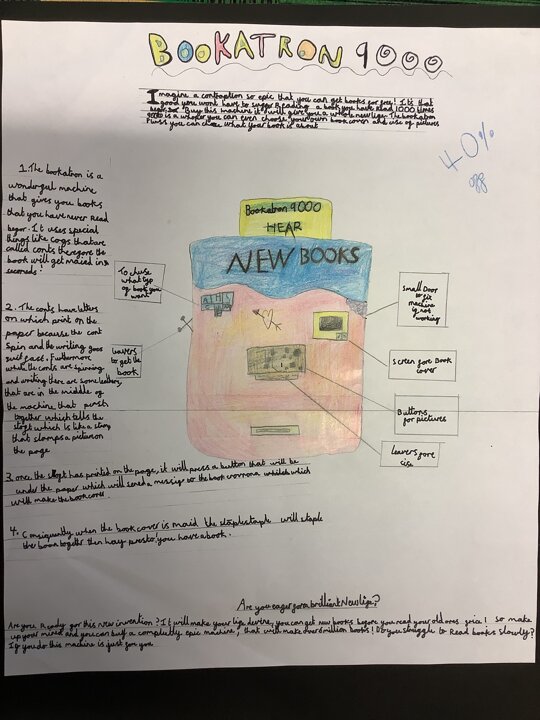 BOOKATRON 9000
Imagine a contraption so epic that you can get books for free! It's that
good you wont have to suger Reading a book you have read 1000 times
again. Buy this machine it will give you a whole new lige. The bookatron
9000 is a whoper you can even choose your own book cover and use og pictures
Pluss you can chose what your book is about
40%
ogg
1. The bookatron is a
wonderful machine
that gives you books
that you have never Read
begor. It uses special
things like cogs that are
called conts theregore the
book will get maced in
seceneds.
Bookatron 9000
HEAR
NEW BOOKS
To chuse
what typ
og book you
want
Small Door
to fix
machine
ig not
working
2. The conts have letters
on which print on the
paper because the cont
Spin and the writing goes
Furthermore
when the conts are spinning
and writing there are some leathers
that are in the middle of
the machine that
together which tells the
which is like a stamp
that stamps a picture on
the page
leavers
to get the
book
Screen fore Book
cover
Buttons
for pictures
leavers fore
sise
3. once the has printed on the page, it will press a button that will be
under the paper which will send a message so the book which
will make the book
4. Consiquently when the book cover is maid the will staple
the book together then hay presto! you have a book.
Are you eager for a brilliant New lige?
Are you Ready gor this new invention? It will make your lige devine, you can get new books begore you read your old ones so make
up your mind and you can buy a completly epic machine, that will make over 6 million books! Do you struggle to Read books slowly?
Ig you do this machine is just for you